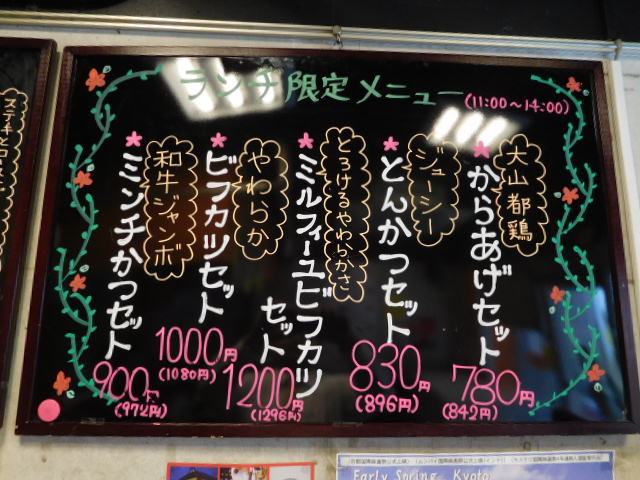 ランチ限定メニュー(11:00〜14:00)
大山都鶏
からあげセット
780円
(842円)
ジューシー
とんかつセット
830円
(896円)
とろけるやわらかさ
ミルフィーユビフカツ
セット
1200円
(1296円)
やわらか
ビフカツセット
1000円
(1080円)
和牛ジャンボ
ミンチかつセット
900円
(972円)
ステキと
Early Spring Kyoto